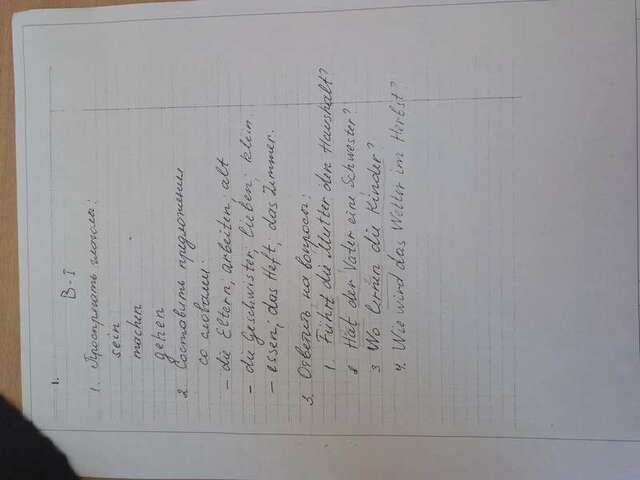 1.
В-I
1. Проспрягать глаголы:
sein
machen
gehen
2. Составить предложения
со словами:
- die Eltern, arbeiten, alt
- die Geschwister, lieben, klein.
- essen, das Heft, das Zimmer.
3. Ответить на вопросы:
1. Führt die Mutter den Haushalt?
2 Hat der Vater eine Schwester?
3 Wo lernen die Kinder?
4. Wie wird das Wetter im Herbst?